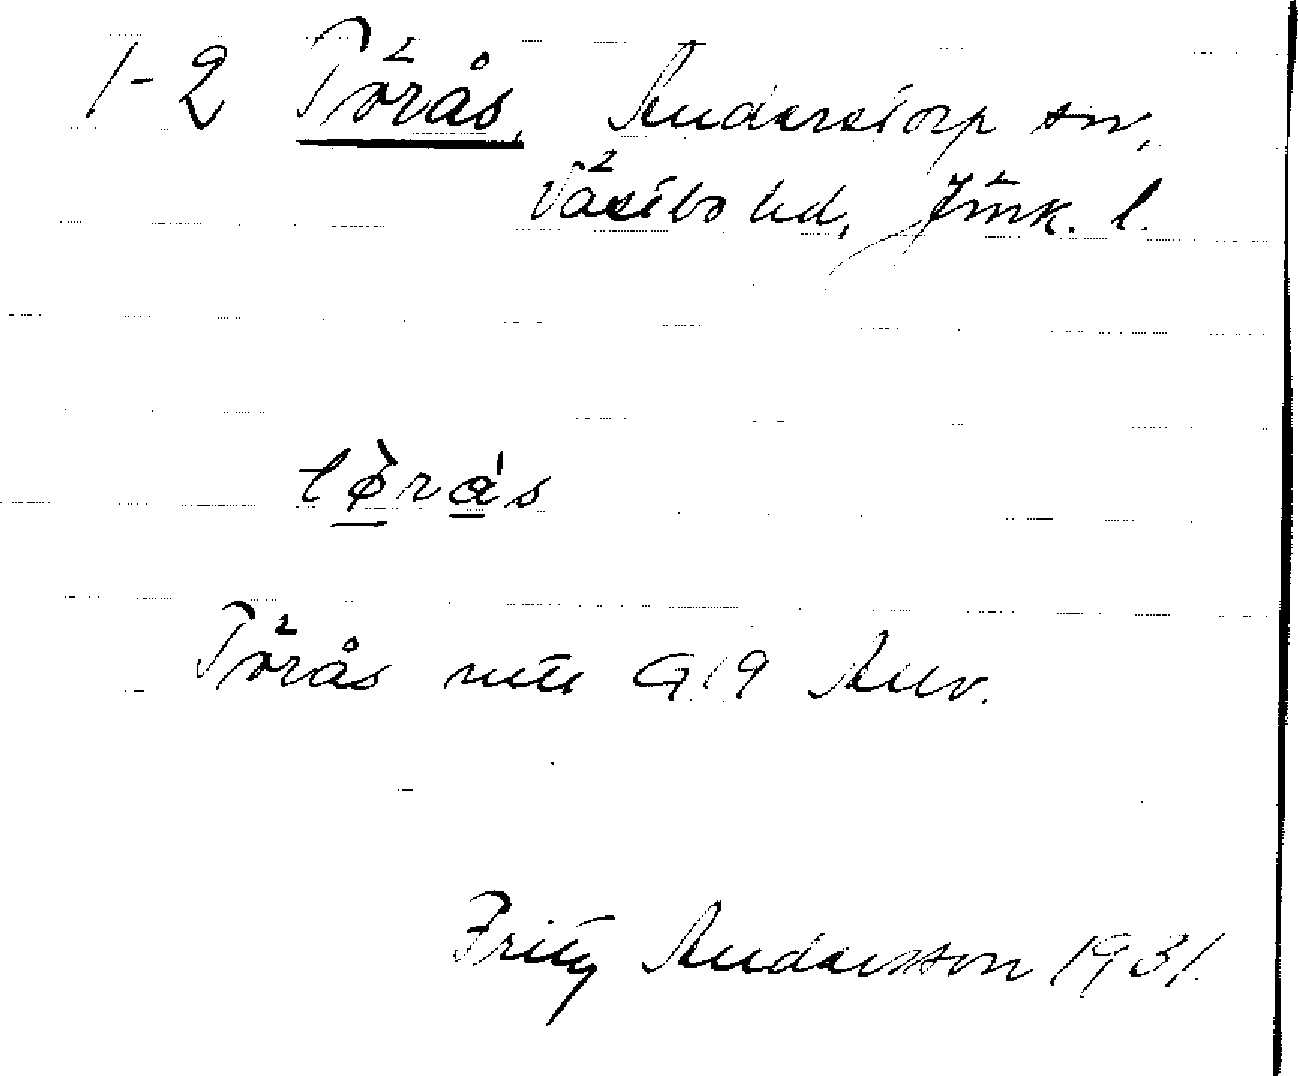 1-2 Törås, Anderstorp sn,
Västbo hd, Jönk. l.
tørás
Törås
Fritz Andersson 1931.